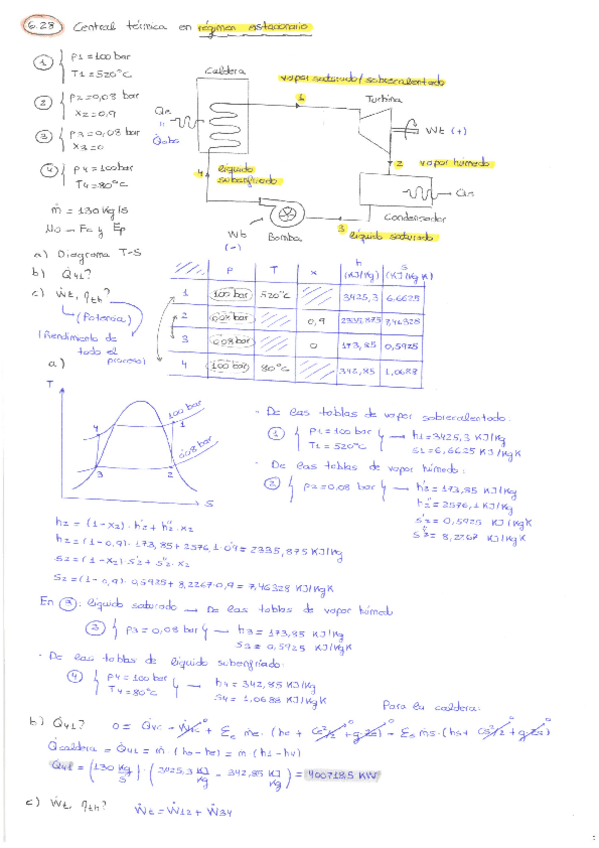 6.28 Central térmica en régimen estacionario
1 { P1 = 100 bar
T1 = 520°C
2 { P2 = 0,08 bar
x2 = 0,9
3 { P3 = 0,08 bar
x3 = 0
4 { P4 = 100 bar
T4 = 80°C
ṁ = 130 kg/s
No - Ec y Ep
a) Diagrama T-S
b) Q̇41?
c) Ẇt, ηth?
(Potencia)
(Rendimiento de
todo el
proceso)
Caldera
vapor saturado/sobrecalentado
1
Turbina
Wt (+)
2 vapor húmedo
Condensador
3 líquido saturado
Bomba
Wb
(-)
4 líquido
subenfriado
P T x h (KJ/Kg) s (KJ/Kg K)
1 100 bar 520°C 3425,3 6,6625
2 0,08 bar 0,9 2335,875 7,46328
3 0,08 bar 0 173,85 0,5925
4 100 bar 80°C 342,85 1,0688
a)
T
100 bar
0,08 bar
4 1
3 2
S
- De las tablas de vapor sobrecalentado:
1 { P1 = 100 bar } → h1 = 3425,3 KJ/Kg
T1 = 520°C s1 = 6,6625 KJ/Kg K
- De las tablas de vapor húmedo:
2 { P2 = 0,08 bar } → h2' = 173,85 KJ/Kg
h2'' = 2576,1 KJ/Kg
s2' = 0,5925 KJ/Kg K
s2'' = 8,2267 KJ/Kg K
h2 = (1-x2) · h2' + h2'' · x2
h2 = (1-0,9) · 173,85 + 2576,1 · 0,9 = 2335,875 KJ/Kg
s2 = (1-x2) · s2' + s2'' · x2
s2 = (1-0,9) · 0,5925 + 8,2267 · 0,9 = 7,46328 KJ/Kg K
En 3: líquido saturado → De las tablas de vapor húmedo
3 { P3 = 0,08 bar } → h3 = 173,85 KJ/Kg
s3 = 0,5925 KJ/Kg K
- De las tablas de líquido subenfriado:
4 { P4 = 100 bar } → h4 = 342,85 KJ/Kg
T4 = 80°C s4 = 1,0688 KJ/Kg K
Para la caldera:
b) Q̇41? 0 = Q̇vc - Ẇvc + Σe ṁe · (he + Ce²/2 + g·ze) - Σs ṁs · (hs + Cs²/2 + g·zs)
Q̇caldera = Q̇41 = ṁ (hs - he) = ṁ (h1 - h4)
Q̇41 = (130 Kg/s) · (3425,3 KJ/Kg - 342,85 KJ/Kg) = 400718,5 KW
c) Ẇt, ηth? Ẇt = Ẇ12 + Ẇ34